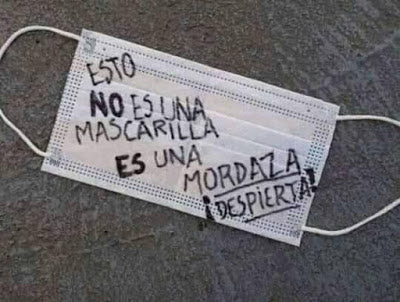 ESTO
NO ES UNA
MASCARILLA
ES UNA
MORDAZA
¡DESPIERTA!